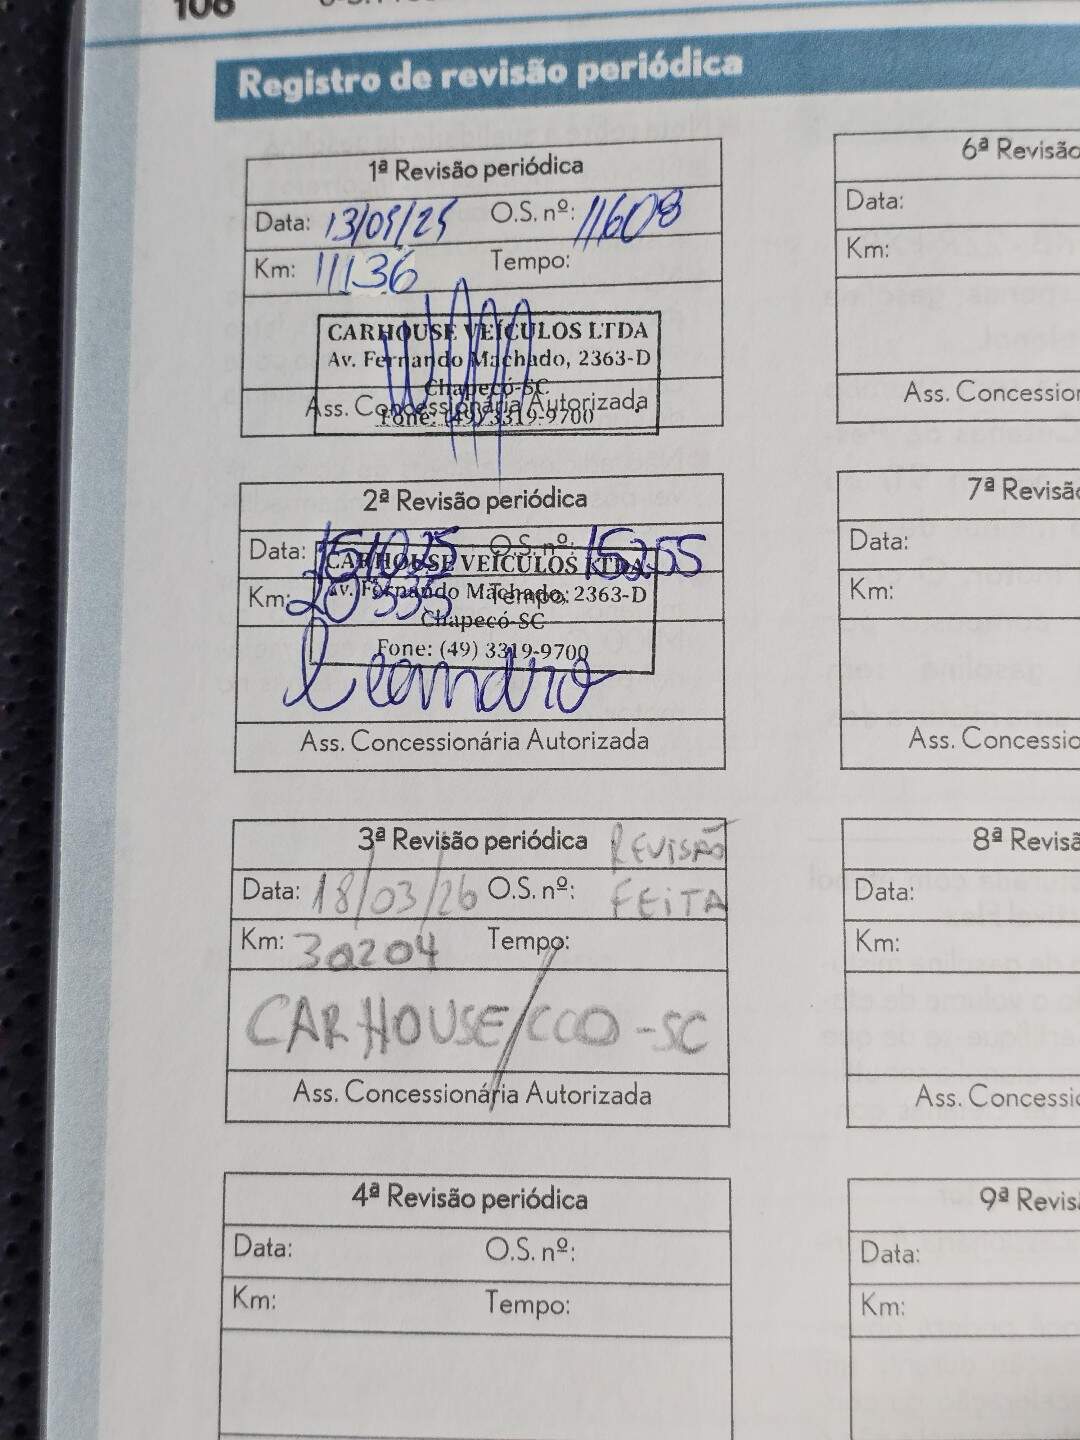 106
Registro de revisão periódica
1ª Revisão periódica
Data: 13/05/25 O.S. nº: 11608
Km: 11136 Tempo:
CARHOUSE VEÍCULOS LTDA
Av. Fernando Machado, 2363-D
Chapecó-SC
Ass. Concessionária Autorizada
Fone: (49) 3319-9700
2ª Revisão periódica
Data: 151025 O.S. nº: 15255
CARHOUSE VEÍCULOS LTDA
Km: 20335 Tempo:
Av. Fernando Machado, 2363-D
Chapecó-SC
Fone: (49) 3319-9700
Leandro
Ass. Concessionária Autorizada
3ª Revisão periódica REVISÃO
Data: 18/03/26 O.S. nº: FEITA
Km: 30204 Tempo:
CARHOUSE/CCO-SC
Ass. Concessionária Autorizada
4ª Revisão periódica
Data: O.S. nº:
Km: Tempo:
6ª Revisão
Data:
Km:
Ass. Concession
7ª Revisão
Data:
Km:
Ass. Concessio
8ª Revisã
Data:
Km:
Ass. Concessio
9ª Revis
Data:
Km: